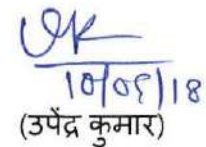 10/05/18
(उपेंद्र कुमार)